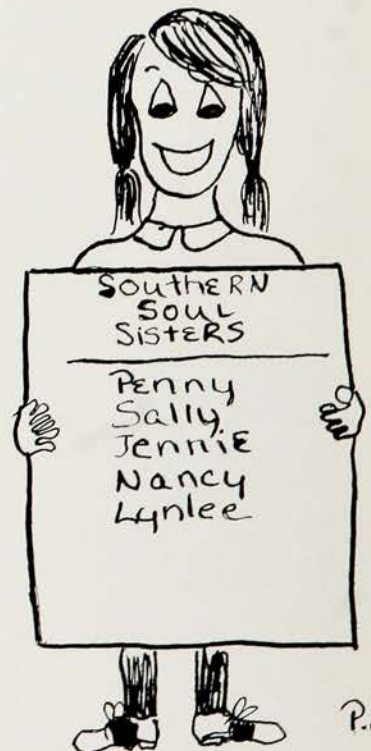 SOUTHERN
SOUL
SISTERS
Penny
Sally
Jennie
Nancy
Lynlee